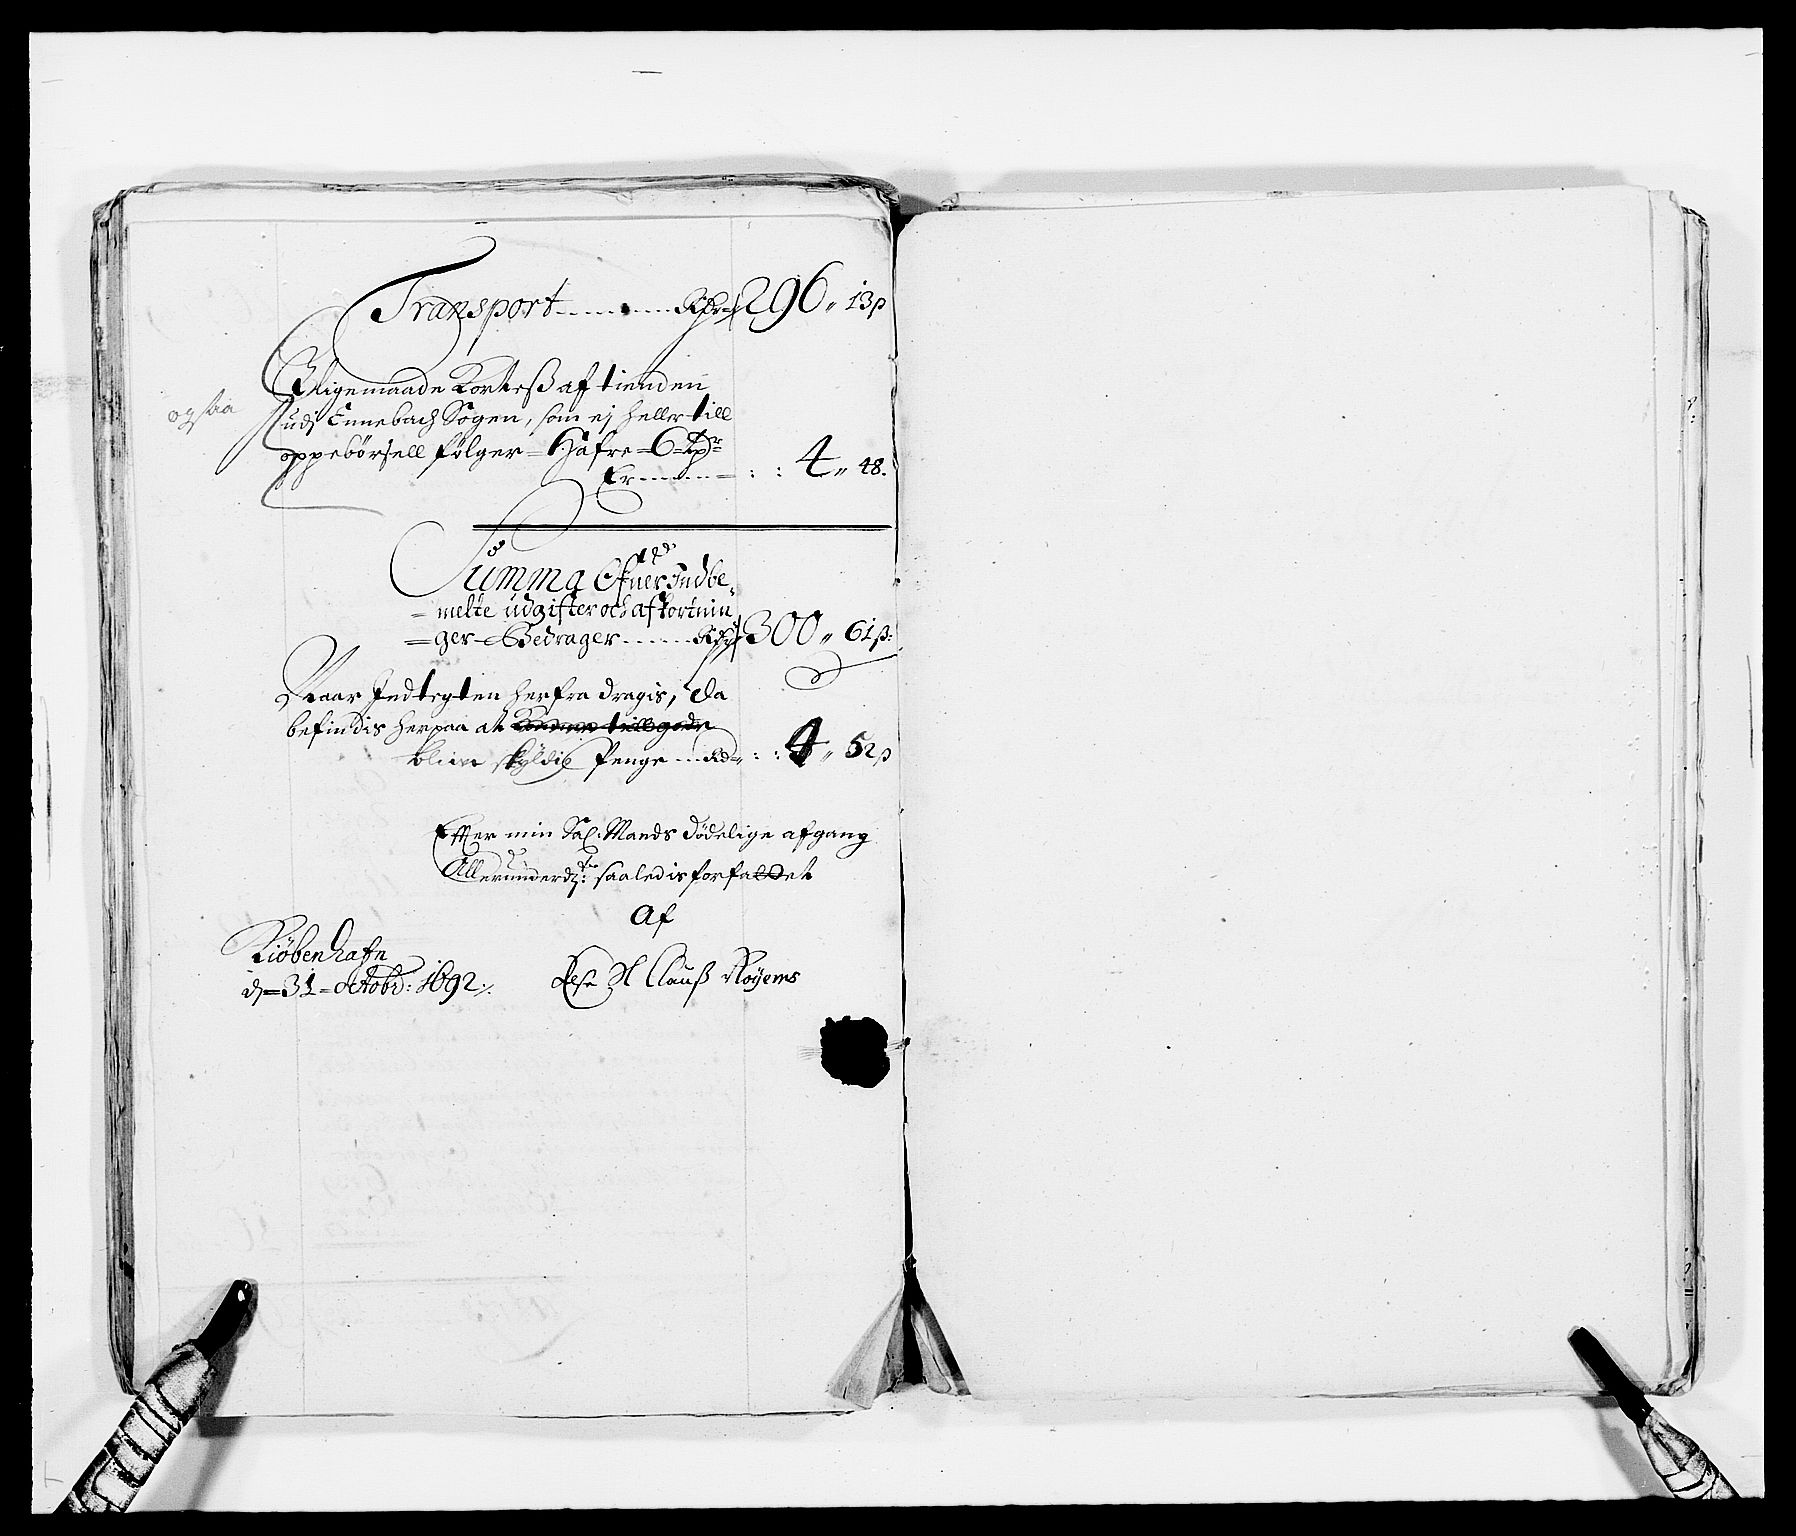 Transport ------- Rdr 296 ,, 13 ß
Iligemaade Kortes af tienden
og saa
udj Ennebach Sogen, som ej heller till
oppebörsell følger = Hafre = 6 =
Er ------ = : : 4 ,, 48.
Summa Ofuer Indbe,
= melte udgifter och afkortnin
= ger = Bedrager ------ Rdr 300 ,, 61 ß:
Naar Indtegten herfra dragis, da
befindis herpaa at till gode
blive skyldig Penge --- Rd = : : 4 ,, 52 ß
Effter min Sal: Mands Dödelige afgang
Allerunderd: saaledis forfattet
Af
Kiöbenhafn
d = 31 = Octobr: 1692 ./.
Sl Clauß Røyems